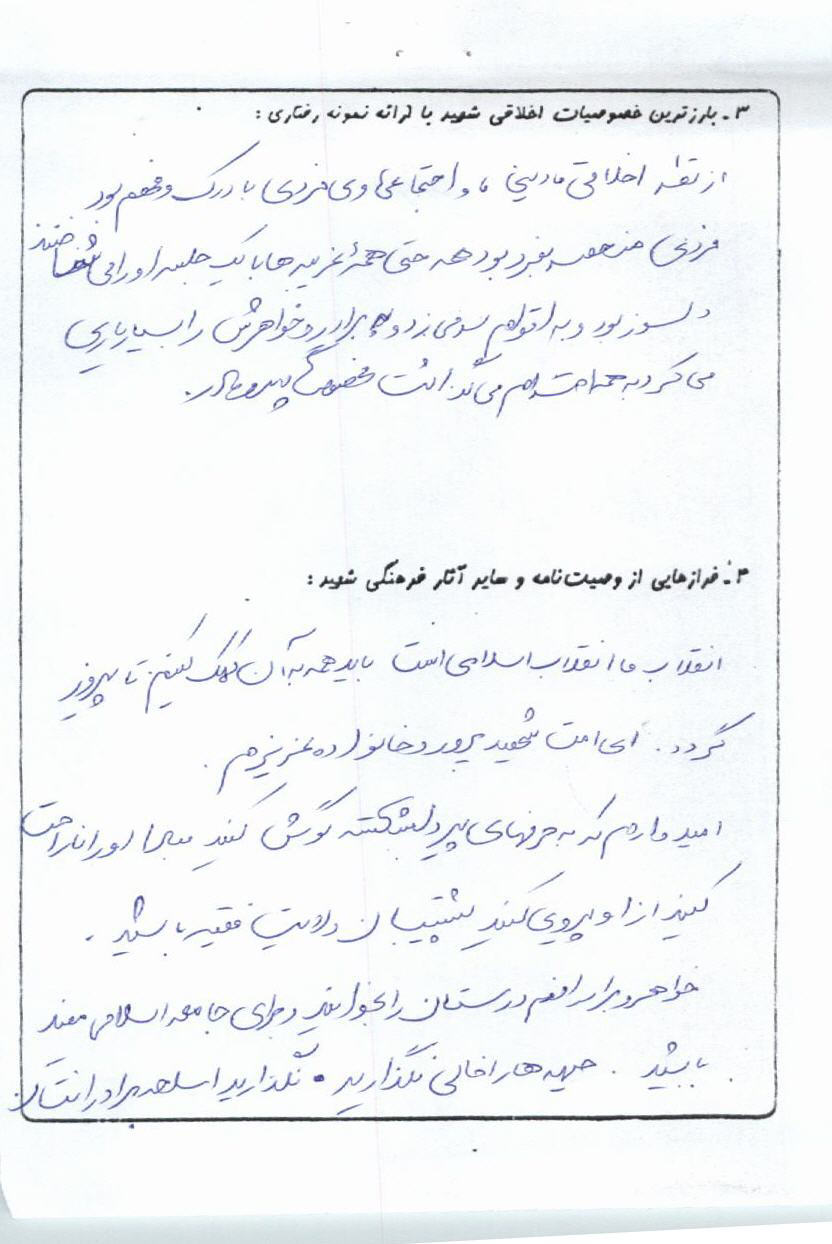 ۳ـ بارزترین خصوصیات اخلاقی شهید با ارائه نمونه رفتاری :
از نقطه اخلاقی و دینی و اجتماعی وی فردی با درک و فهم بود
فردی منحصر بفرد بود که حتی همهٔ غریبه ها با یک جلسه او را می شناختند
دلسوز بود و به اقوام سر می زد و به برادر و خواهرش را بسیار یاری
می کرد به همه احترام می گذاشت مخصوصاً پدر و مادر.
۴ـ فرازهایی از وصیت‌نامه و سایر آثار فرهنگی شهید :
انقلاب ما انقلاب اسلامی است باید همه به آن کمک کنیم تا پیروز
گردد. ای امت شهید پرور و خانواده عزیزم.
امیدوارم که به حرفهای پیر دلشکسته گوش کنید مبادا او را ناراحت
کنید از او پیروی کنید پشتیبان ولایت فقیه باشید.
خواهر و برادرانم درستان را بخوانید و برای جامعه اسلامی مفید
باشید. جبهه ها را خالی نگذارید. نگذارید اسلحه برادرانتان